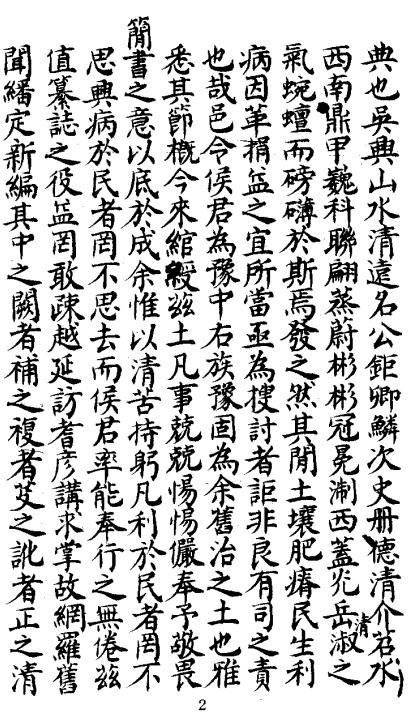 典也吳興山水清遠名公鉅卿鱗次史冊德清介苕水
西南鼎甲巍科聯翩蒸蔚彬彬冠冕淛西蓋光岳淑清之
氣蜿蟺而磅礴於斯焉發之然其閒土壤肥瘠民生利
病因革損益之宜所當亟為搜討者詎非良有司之責
也哉邑令侯君為豫中右族豫固為余舊治之土也雅
悉其節概今來綰綬茲土凡事兢兢惕惕儼奉予敬畏
簡書之意以底於成余惟以清苦持躬凡利於民者罔不
思興病於民者罔不思去而侯君率能奉行之無倦茲
值纂誌之役益罔敢疎越延訪耆彦講求掌故網羅舊
聞繙定新編其中之闕者補之複者芟之訛者正之清
2